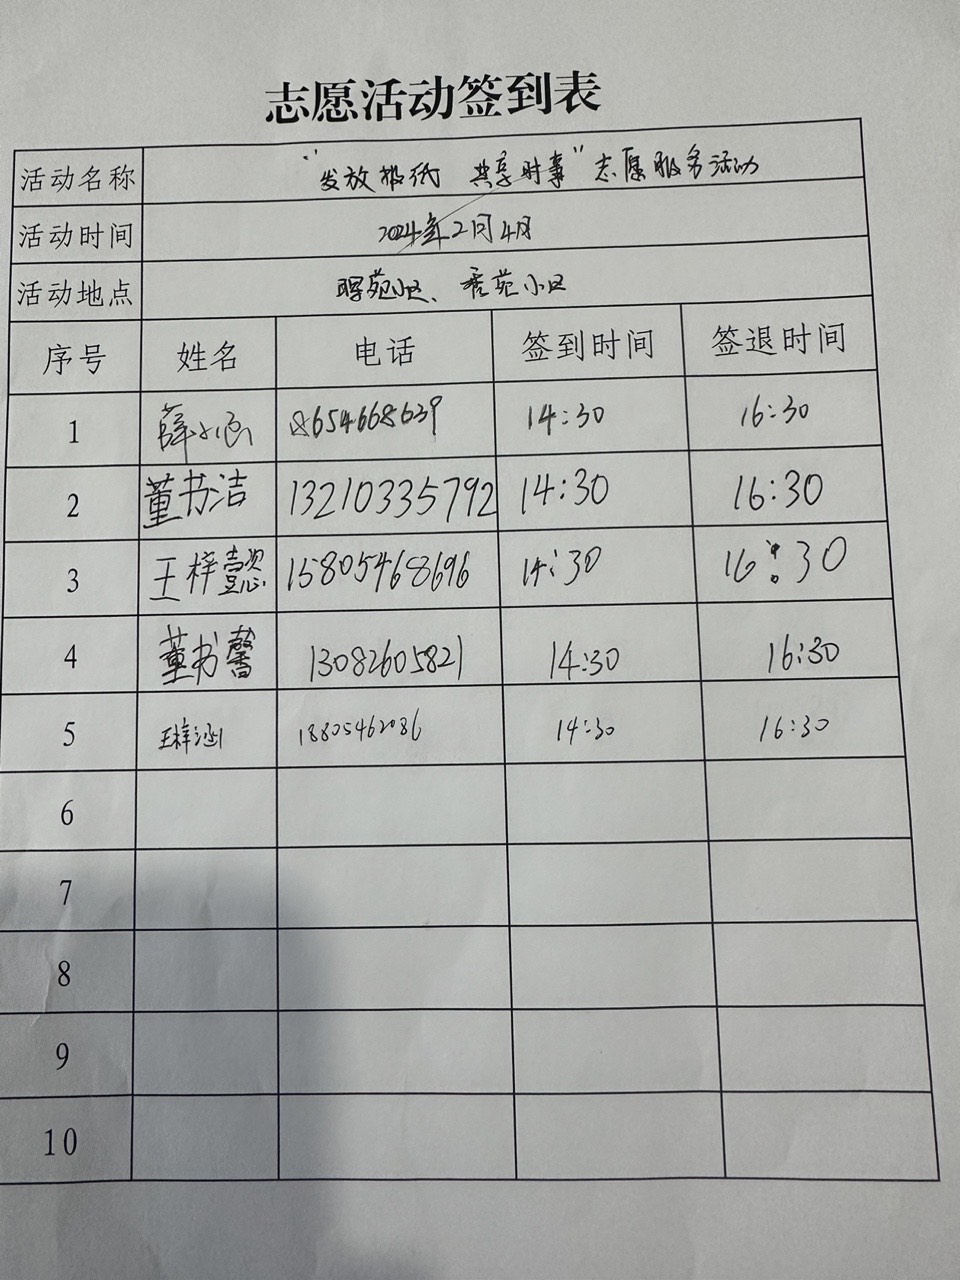 志愿活动签到表
活动名称 “发放报纸 共享时事”志愿服务活动
活动时间 2024年2月4日
活动地点 晖苑小区、秀苑小区
序号 姓名 电话 签到时间 签退时间
1 薛小涵 18654668639 14:30 16:30
2 董书洁 13210335792 14:30 16:30
3 王梓懿 15805468696 14:30 16:30
4 董书馨 13082605821 14:30 16:30
5 王梓涵 18805462086 14:30 16:30
6
7
8
9
10